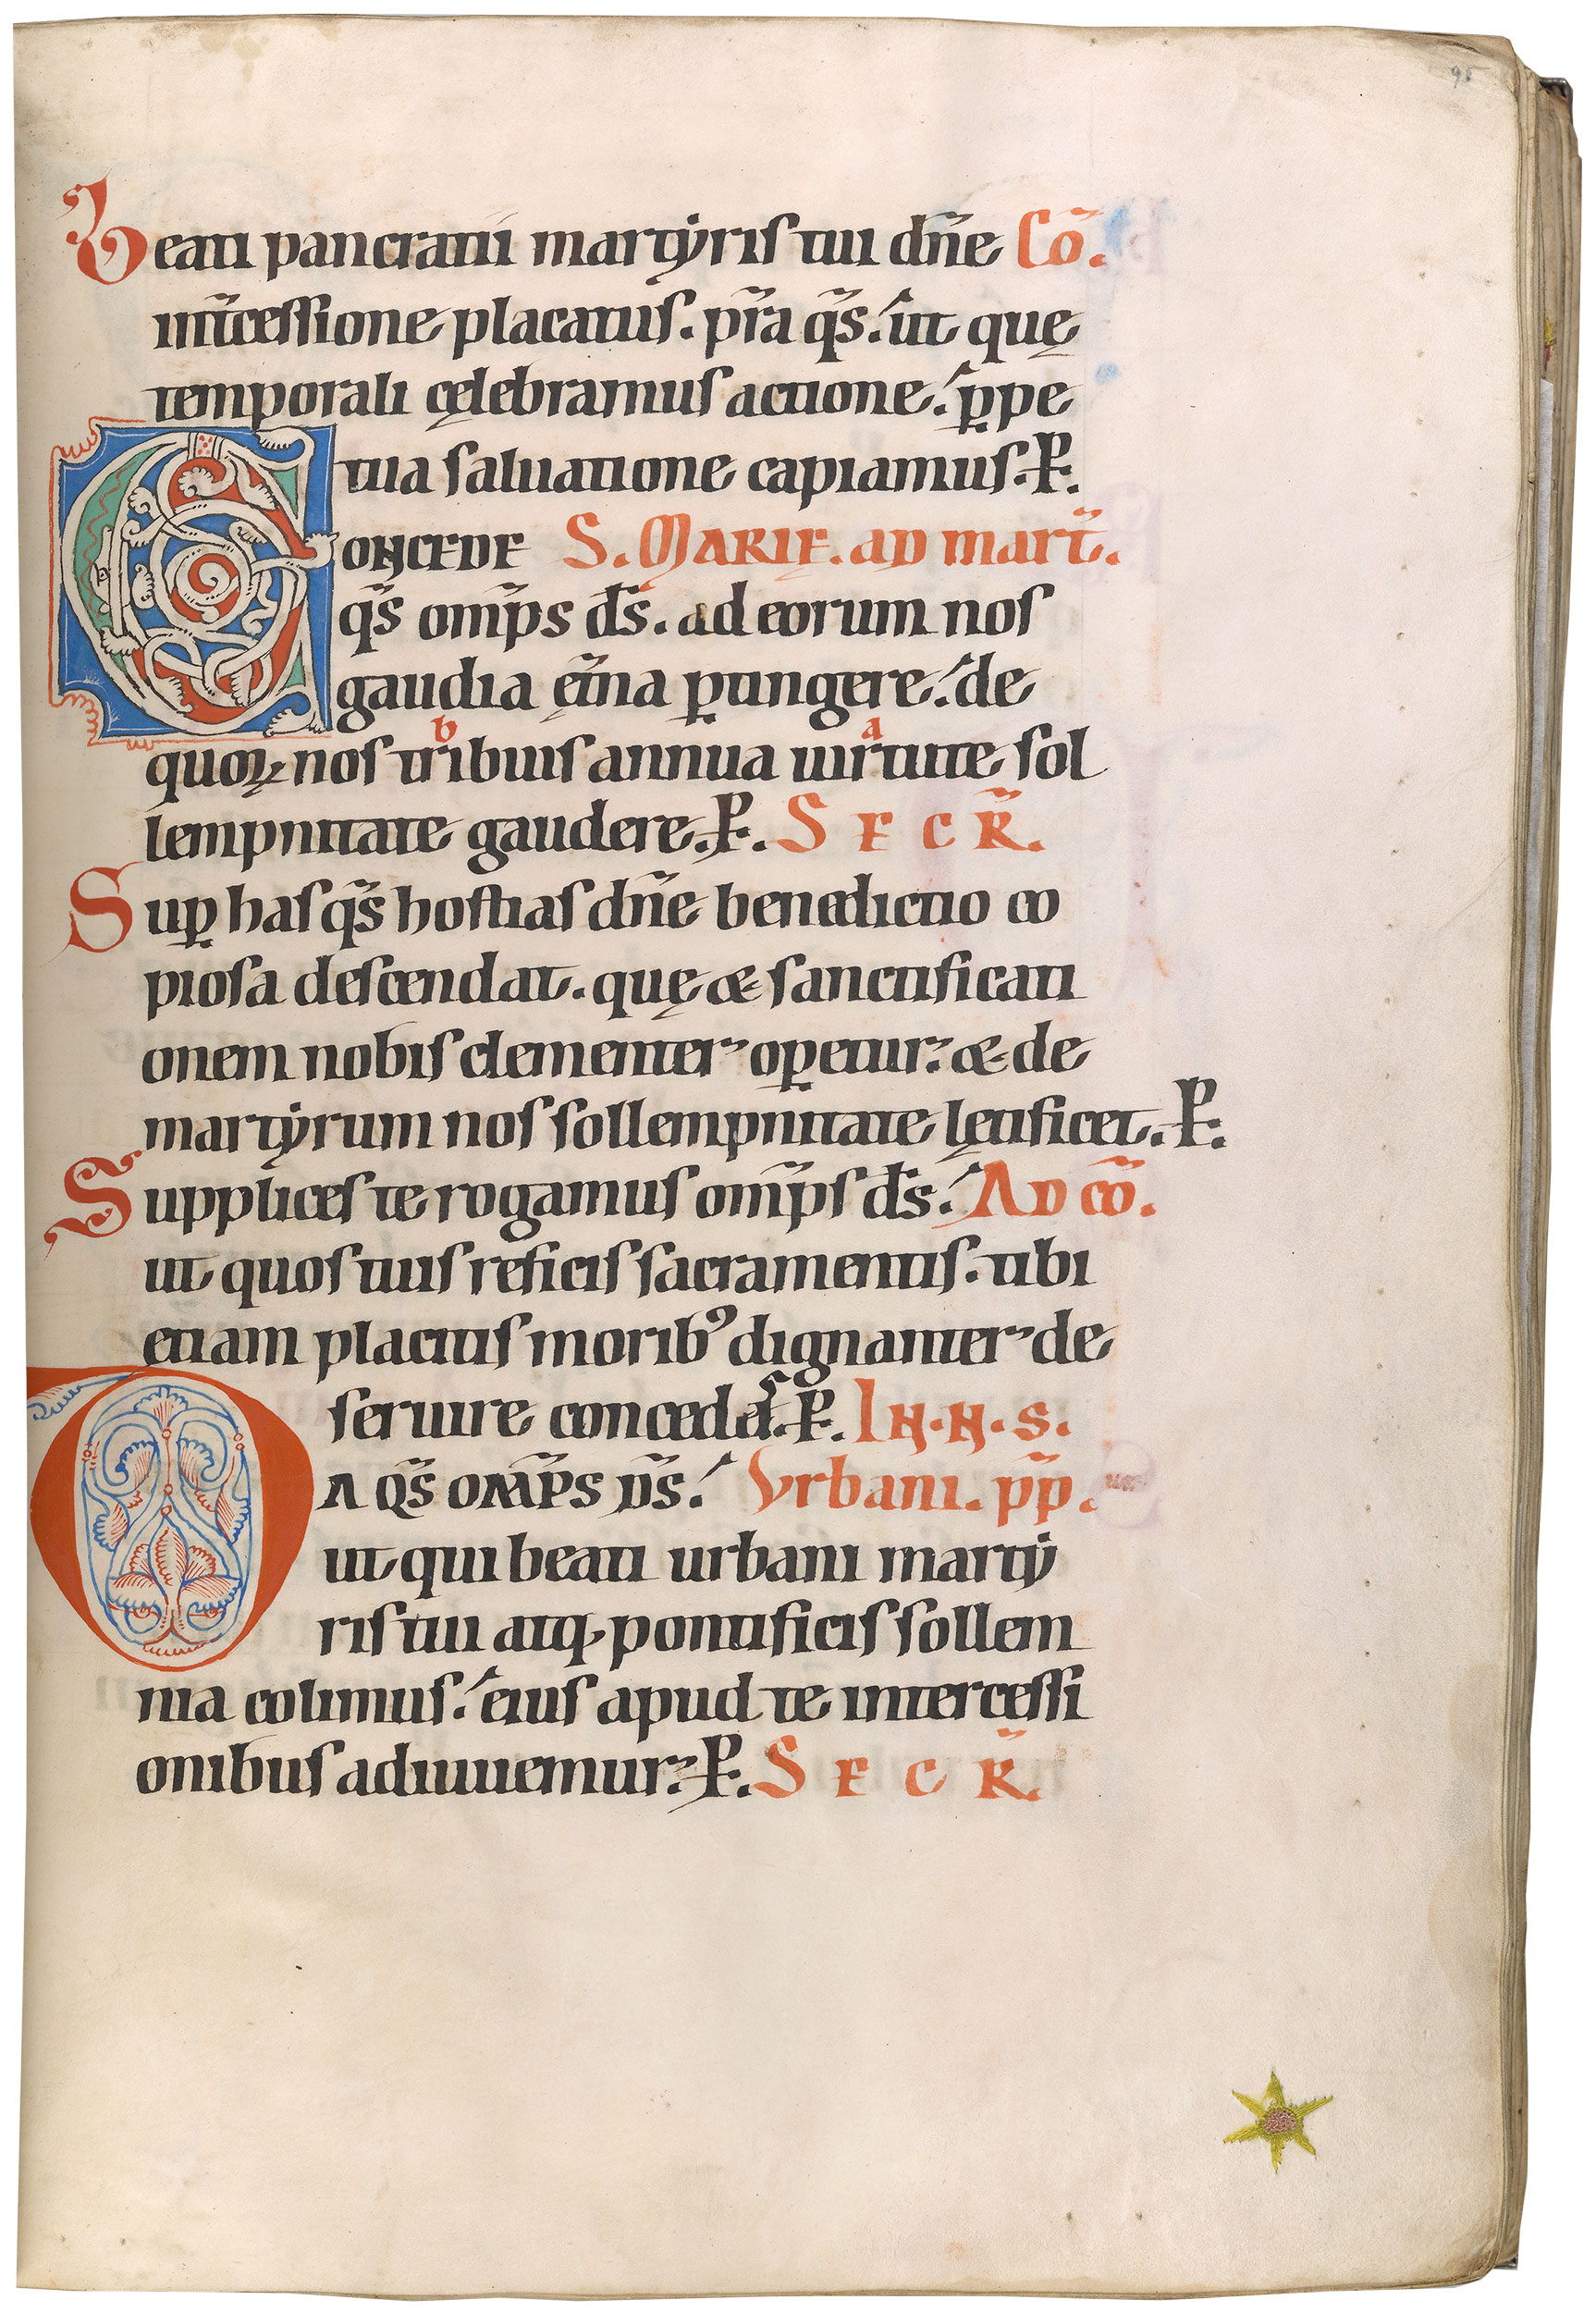 95
Beati pancratii martẏris tui dn̄e Co̅.
int̅cessione placatus. pr̅a q̅s. ut quę
temporali cęlebramus actione. ꝑpe
tua saluatione capiamus. P.
CONCEDE S. MARIĘ. AD mart̅.
q̅s omp̅s d̅s. ad eorum nos
gaudia ęt̅na ꝑtingere. de
quoꝝ nos tribuis b annua uirtute a sol
lempnitate gaudere. P. S E C R̅.
Suꝑ has q̅s hostias dn̄e benedictio co
piosa descendat. quę & sanctificati
onem nobis clementer oꝑetur. & de
martẏrum nos sollempnitate lętificet. P.
Supplices te rogamus omp̅s d̅s. AD co̅.
ut quos tuis reficis sacramentis. tibi
etiam placitis moribꝰ dignanter de
seruire concedas. P. IN. N. S.
DA Q̅S OMP̅S D̅S. Vrbani. pp̅.
ut qui beati urbani martẏ
ris tui atq; pontificis sollem
nia colimus. eius apud te intercessi
onibus adiuuemur. P. S E C R̅.